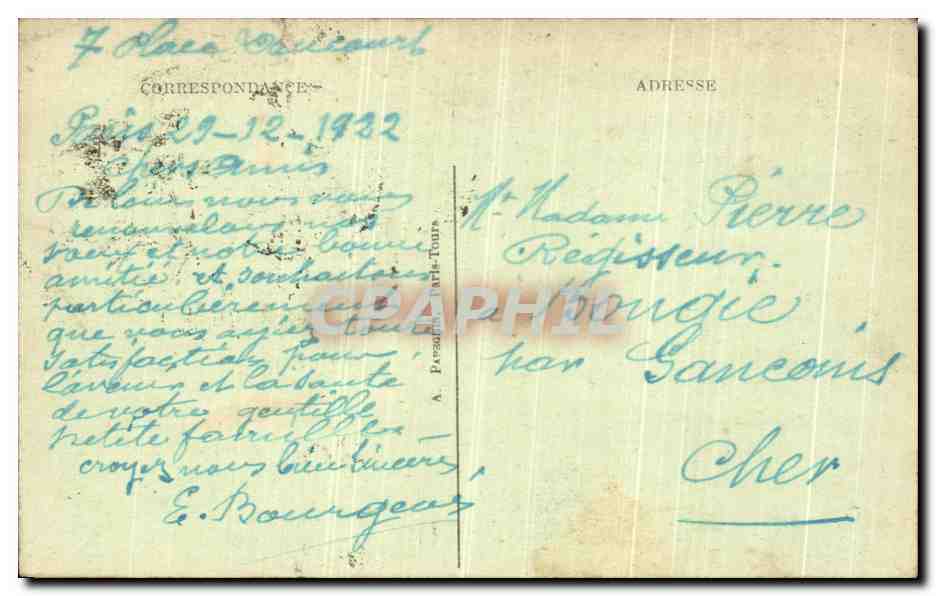 7 Place
CORRESPONDANCE
Paris 29-12-1922
chers Amis
nous vous
renouvelons nos
voeux et notre bonne
amitié et souhaitons
particulièrement
que vous ayez tout
satisfactions pour
l'avenir et la santé
de votre gentille
petite famille
croyez nous bien sincères
E. Bourgeois
A. PAPEGHIN, Paris-Tours
ADRESSE
Mr Madame Pierre
Régisseur
Bougie
par Sancoins
Cher
CPAPHIL